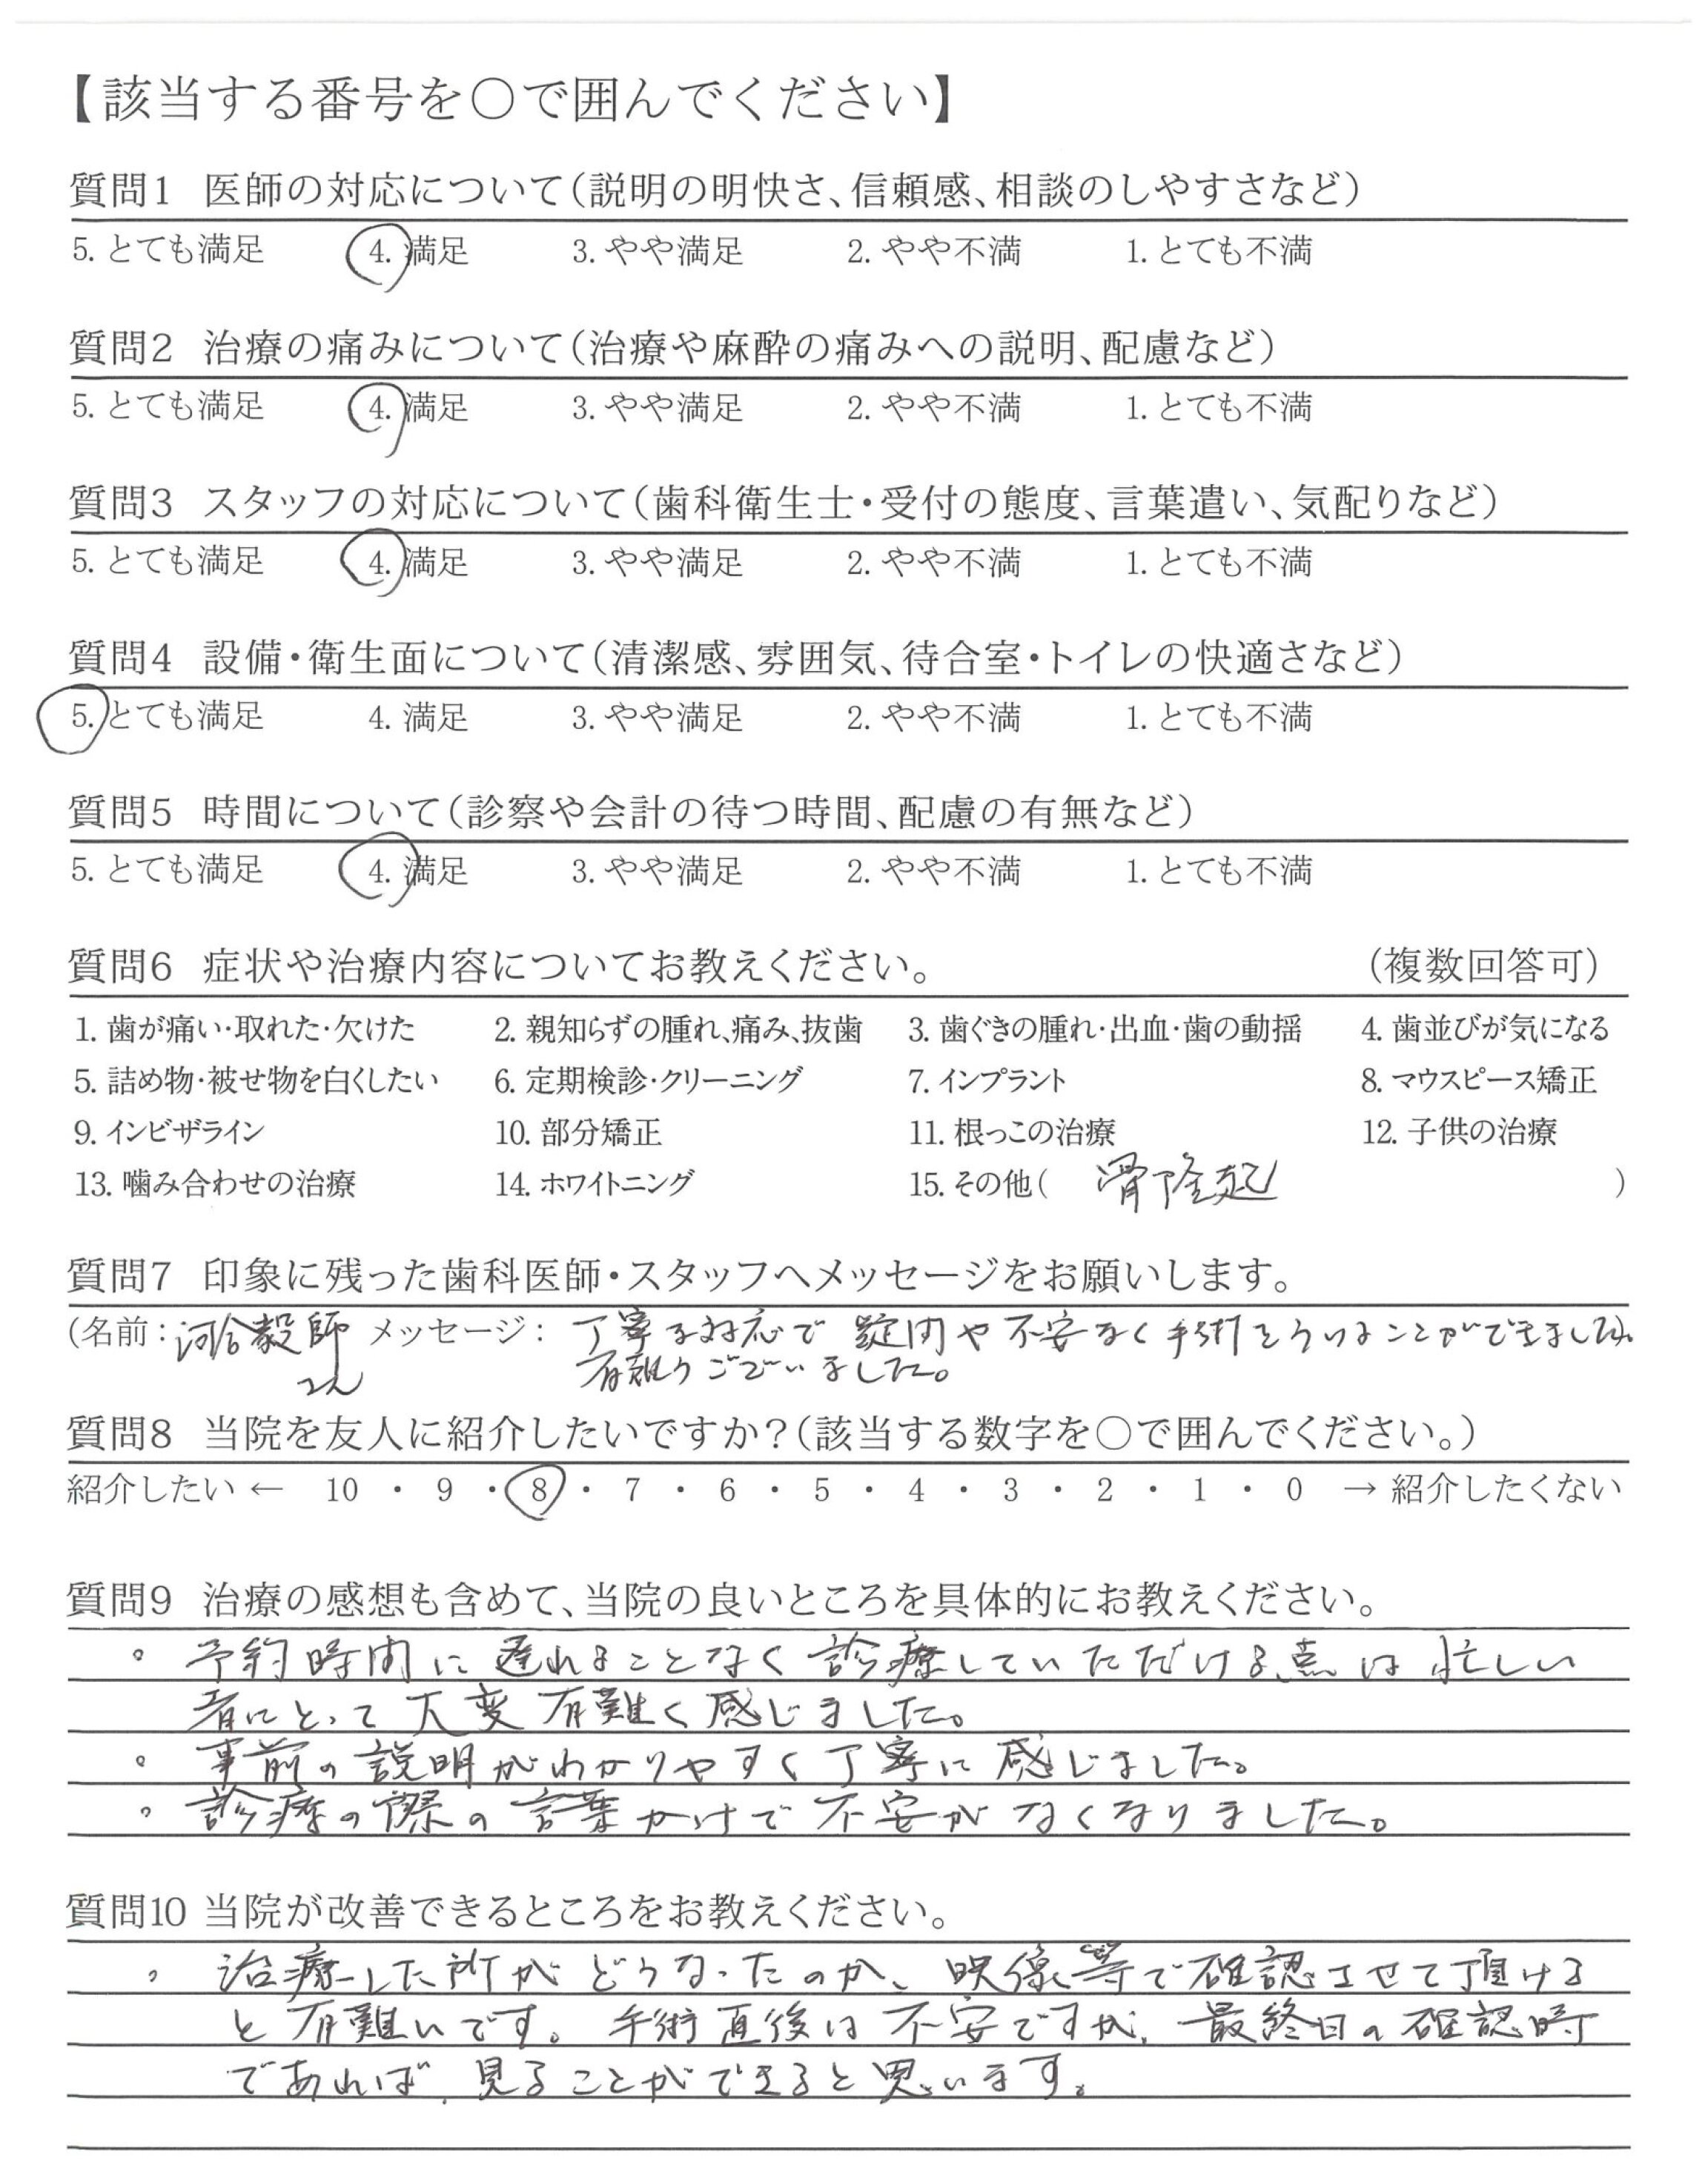 【該当する番号を○で囲んでください】
質問1 医師の対応について(説明の明快さ、信頼感、相談のしやすさなど)
5. とても満足 4. 満足 3. やや満足 2. やや不満 1. とても不満
質問2 治療の痛みについて(治療や麻酔の痛みへの説明、配慮など)
5. とても満足 4. 満足 3. やや満足 2. やや不満 1. とても不満
質問3 スタッフの対応について(歯科衛生士・受付の態度、言葉遣い、気配りなど)
5. とても満足 4. 満足 3. やや満足 2. やや不満 1. とても不満
質問4 設備・衛生面について(清潔感、雰囲気、待合室・トイレの快適さなど)
5. とても満足 4. 満足 3. やや満足 2. やや不満 1. とても不満
質問5 時間について(診察や会計の待つ時間、配慮の有無など)
5. とても満足 4. 満足 3. やや満足 2. やや不満 1. とても不満
質問6 症状や治療内容についてお教えください。 (複数回答可)
1. 歯が痛い・取れた・欠けた 2. 親知らずの腫れ、痛み、抜歯 3. 歯ぐきの腫れ・出血・歯の動揺 4. 歯並びが気になる
5. 詰め物・被せ物を白くしたい 6. 定期検診・クリーニング 7. インプラント 8. マウスピース矯正
9. インビザライン 10. 部分矯正 11. 根っこの治療 12. 子供の治療
13. 噛み合わせの治療 14. ホワイトニング 15. その他( 骨隆起 )
質問7 印象に残った歯科医師・スタッフへメッセージをお願いします。
(名前: 河合毅師 メッセージ: 丁寧な対応で 疑問や不安なく手術をうけることができました。
有難うございました。
質問8 当院を友人に紹介したいですか?(該当する数字を○で囲んでください。)
紹介したい ← 10 ・ 9 ・ 8 ・ 7 ・ 6 ・ 5 ・ 4 ・ 3 ・ 2 ・ 1 ・ 0 → 紹介したくない
質問9 治療の感想も含めて、当院の良いところを具体的にお教えください。
。予約時間に遅れることなく診療していただける点は忙しい
者にとって大変有難く感じました。
。事前の説明がわかりやすく丁寧に感じました。
。診療の際の言葉かけで不安がなくなりました。
質問10 当院が改善できるところをお教えください。
。治療した所がどうなったのか、映像等で確認させて頂ける
と有難いです。手術直後は不安ですが、最終日の確認時
であれば、見ることができると思います。